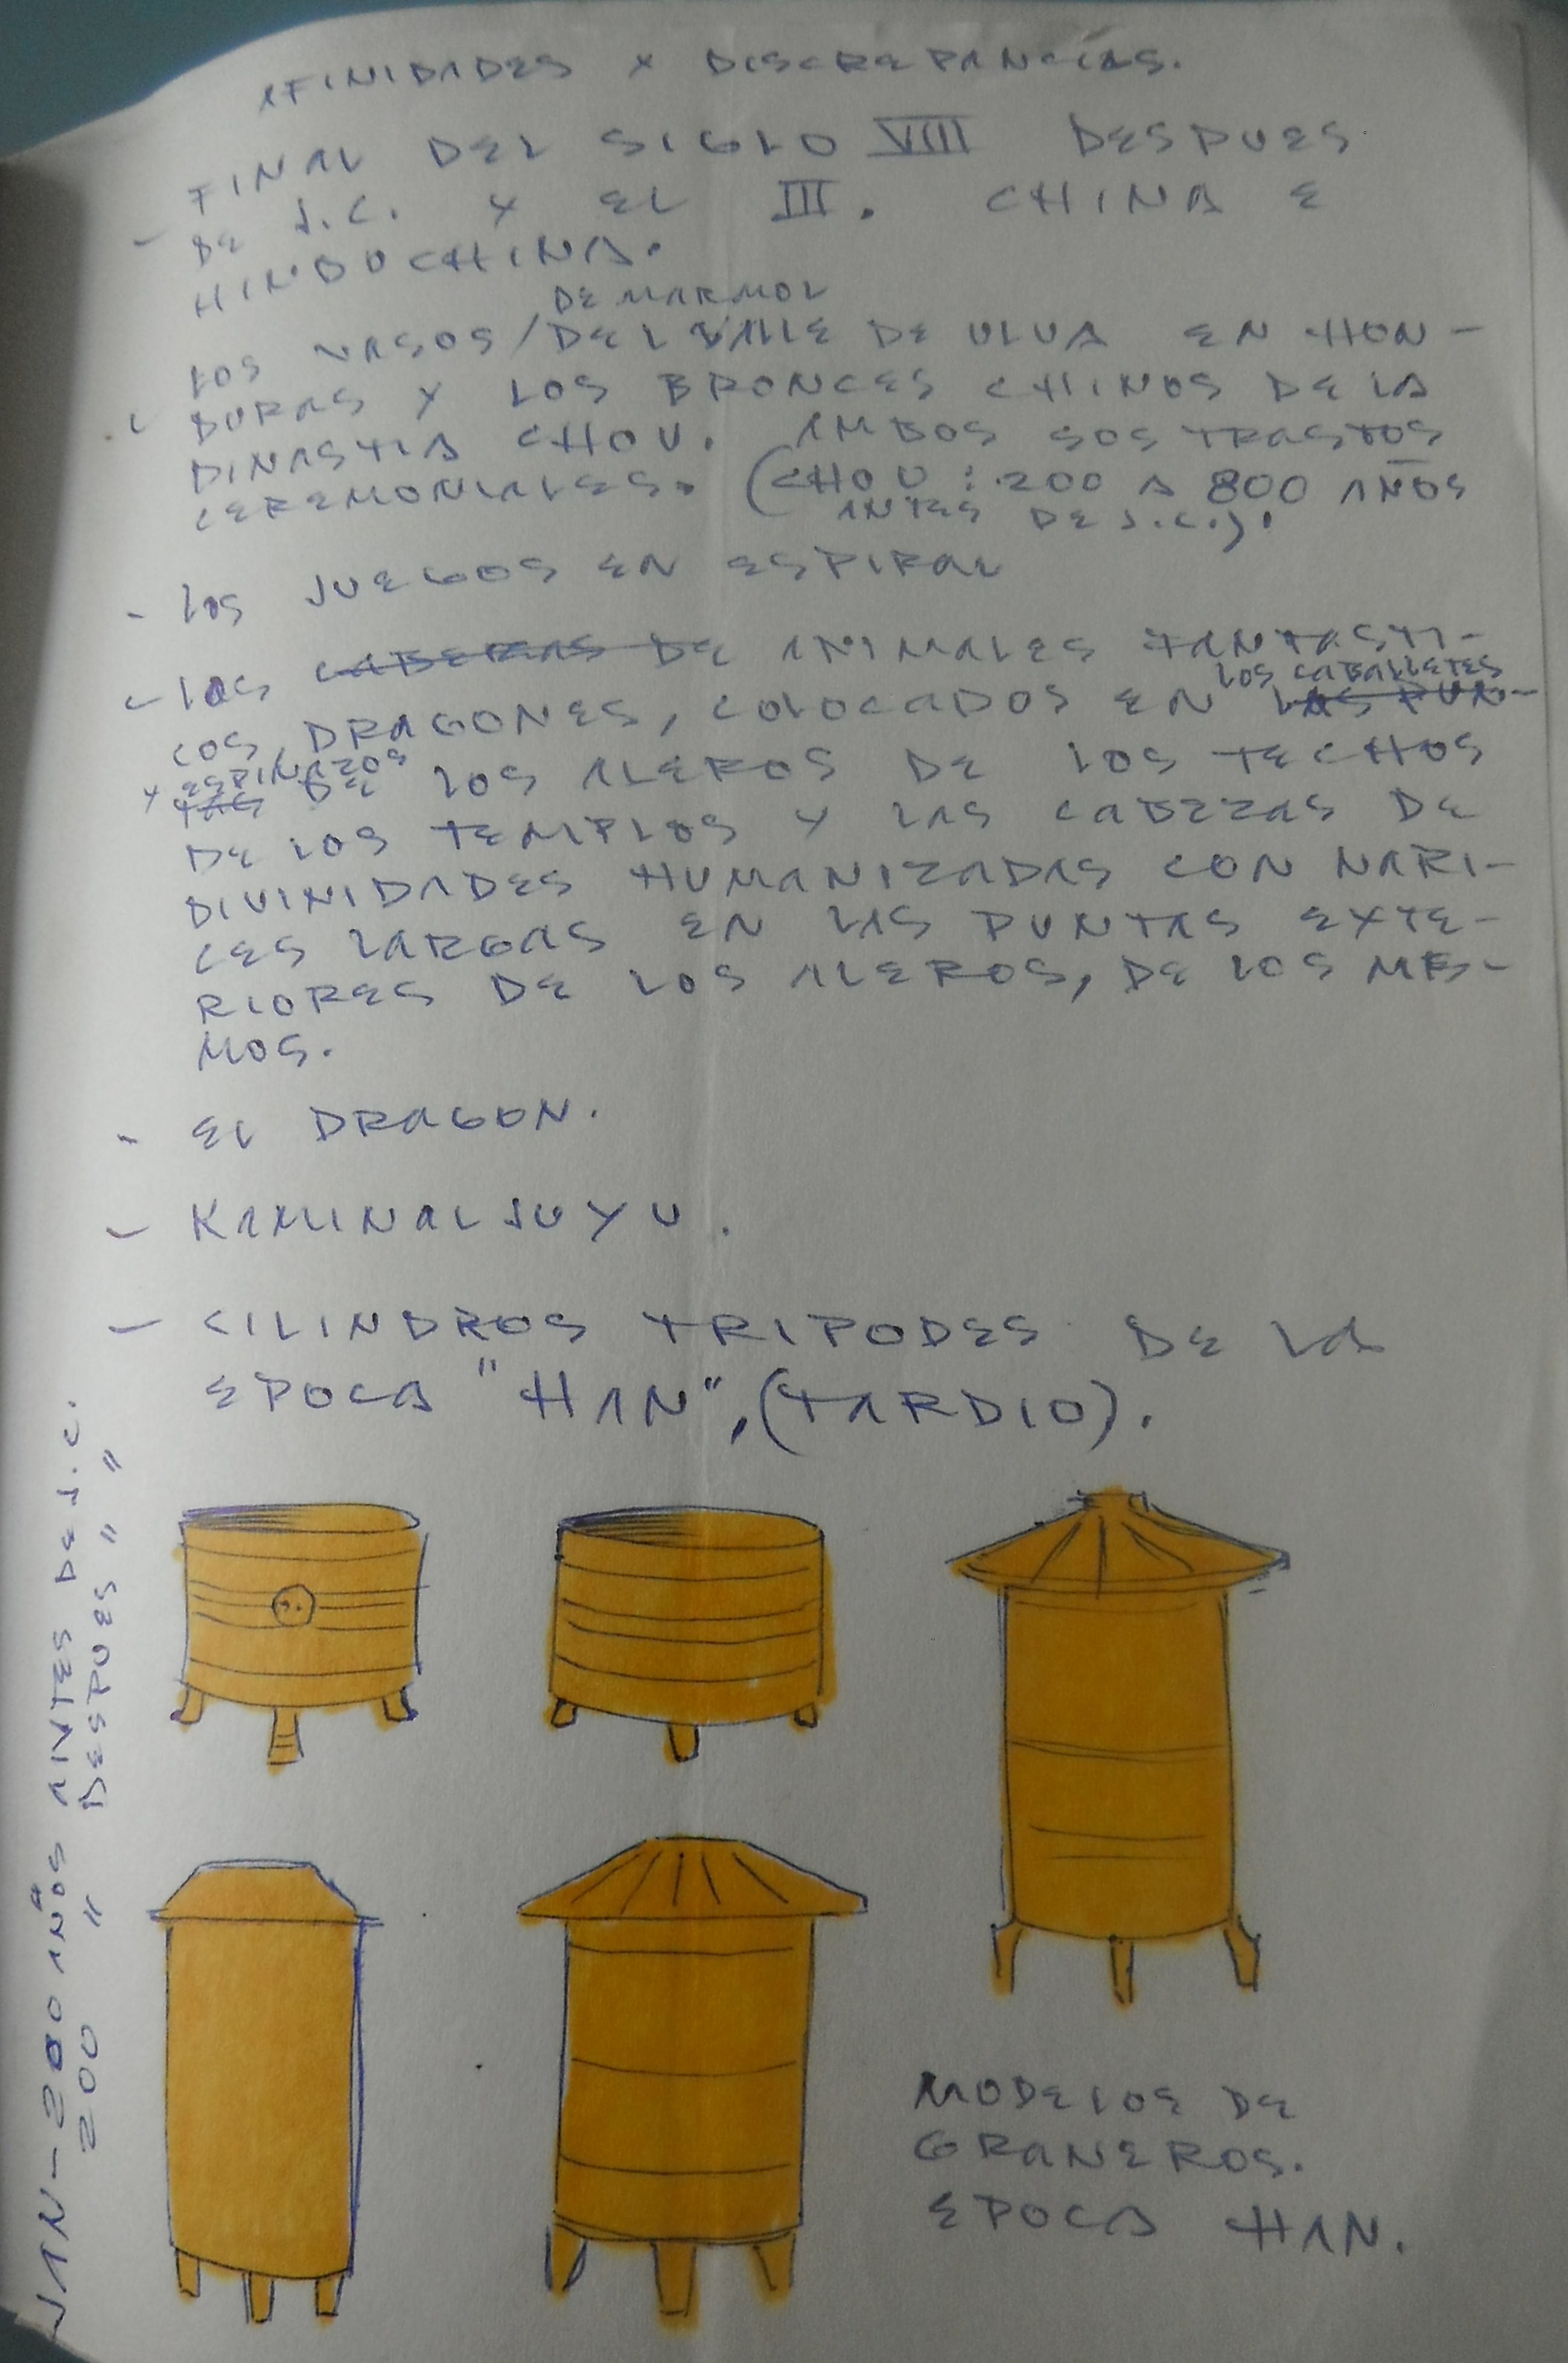 AFINIDADES Y DISCREPANCIAS.
FINAL DEL SIGLO VIII DESPUES
- DE J.C. Y EL III. CHINA E
HINDUCHINA.
DE MARMOL
LOS VASOS/DEL VALLE DE ULUA EN HON-
- DURAS Y LOS BRONCES CHINOS DE LA
DINASTIA CHOU. AMBOS SOS TRASTOS
CEREMONIALES. (CHOU: 200 A 800 AÑOS
ANTES DE J.C.).
- LOS JUEGOS EN ESPIRAL
- LOS CABEZAS DE ANIMALES FANTASTI-
LOS CABALLETES
COS, DRAGONES, COLOCADOS EN LAS PUN-
Y ESPINAZOS
TAS DE LOS ALEROS DE LOS TECHOS
DE LOS TEMPLOS Y LAS CABEZAS DE
DIVINIDADES HUMANIZADAS CON NARI-
CES LARGAS EN LAS PUNTAS EXTE-
RIORES DE LOS ALEROS, DE LOS MIS-
MOS.
- EL DRAGON.
- KAMINALJUYU.
- CILINDROS TRIPODES DE LA
EPOCA "HAN", (TARDIO).
HAN-200 AÑOS ANTES DE J.C.
200 " DESPUES " "
MODELOS DE
GRANEROS.
EPOCA HAN.